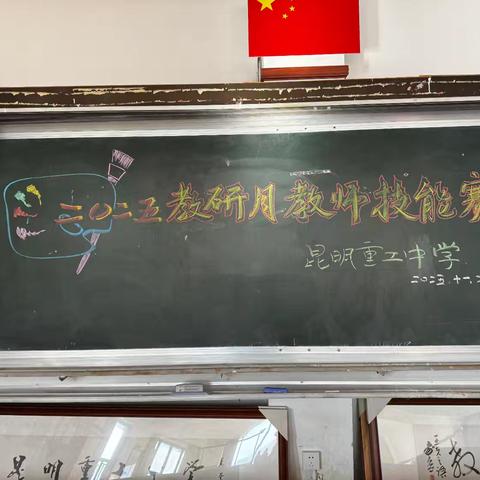 二〇二五教研月教师技能赛
昆明重工中学
二〇二五.十一.
昆明重工中学
教